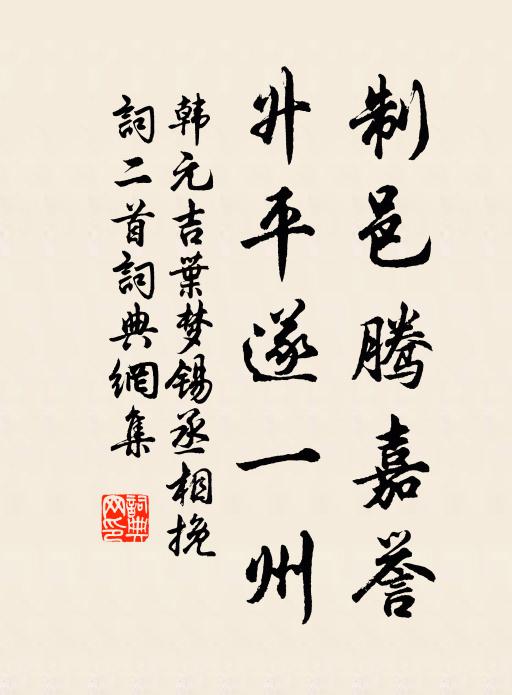 制邑腾嘉誉
升平遂一州
韩元吉葉梦锡丞相挽
詞二首詞典網集
詞典網印